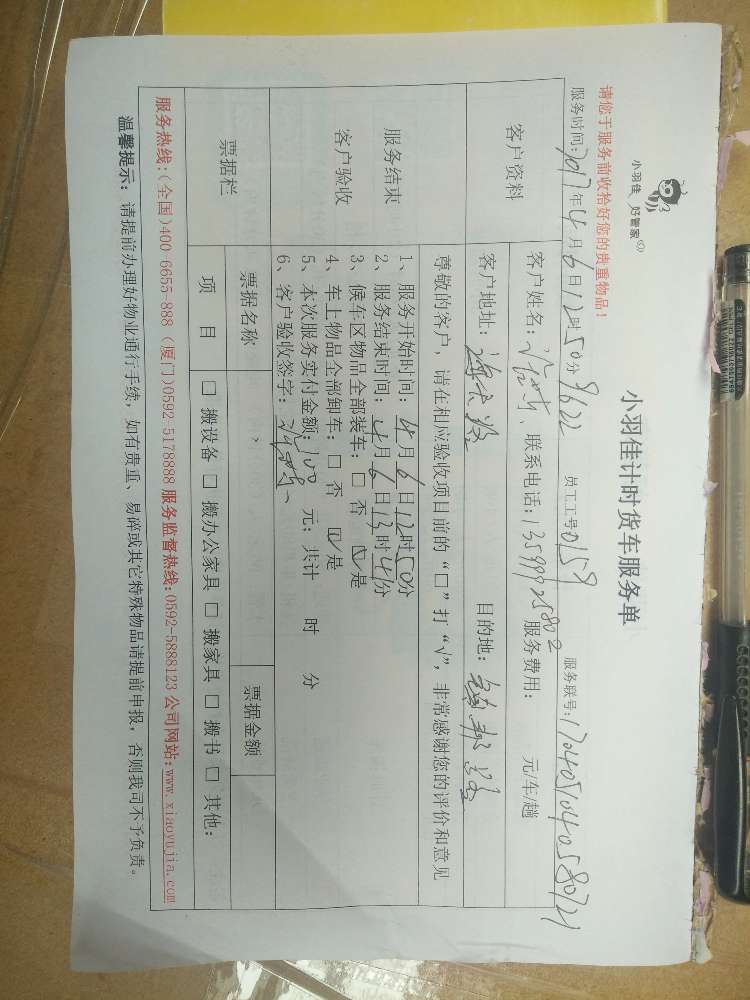 小羽佳 好管家
小羽佳计时货车服务单
请您于服务前收拾好您的贵重物品!
服务时间:2017年4月6日12时50分 9622 员工工号0159 服务联号:1704051040580721
客户资料
客户姓名: 联系电话:13599925802 服务费用: 元/车/趟
客户地址: 目的地:
服务结束
客户验收
尊敬的客户,请在相应验收项目前的“□”打“√”,非常感谢您的评价和意见
1、服务开始时间:4月6日12时50分
2、服务结束时间:4月6日13时41分
3、候车区物品全部装车:□ 否 ☑ 是
4、车上物品全部卸车:□ 否 ☑ 是
5、本次服务实付金额:100 元; 共计 时 分
6、客户验收签字:
票据栏
票据名称 票据金额
项 目 □ 搬设备 □ 搬办公家具 □ 搬家具 □ 搬书 □ 其他:
服务热线:(全国)400 6655-888 (厦门)0592 5178888 服务监督热线:0592-5888123 公司网站:www.xiaoyujia.com
温馨提示:请提前办理好物业通行手续,如有贵重、易碎或其它特殊物品请提前申报,否则我司不予负责。